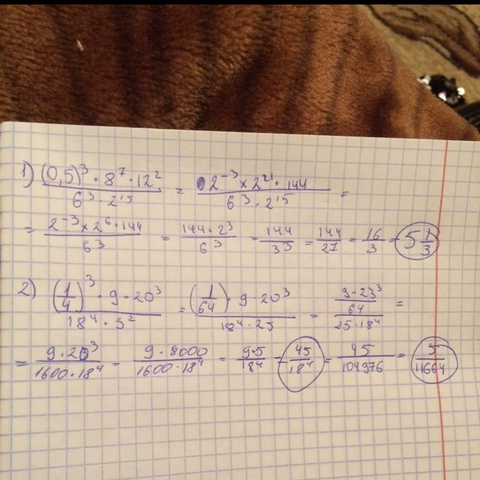 1) (0,5)³ · 8⁷ · 12² / 6³ · 2¹⁵ = 2⁻³ × 2²¹ · 144 / 6³ · 2¹⁵ =
= 2⁻³ × 2⁶ · 144 / 6³ = 144 · 2³ / 6³ = 144 / 3³ = 144 / 27 = 16 / 3 = 5 1/3
2) (1/4)³ · 9 · 20³ / 18⁴ · 5² = (1/64) · 9 · 20³ / 18⁴ · 25 = 9 · 23³ / 64 / 25 · 18⁴ =
= 9 · 20³ / 1600 · 18⁴ = 9 · 8000 / 1600 · 18⁴ = 9 · 5 / 18⁴ = 45 / 18⁴ = 45 / 104976 = 5 / 11664